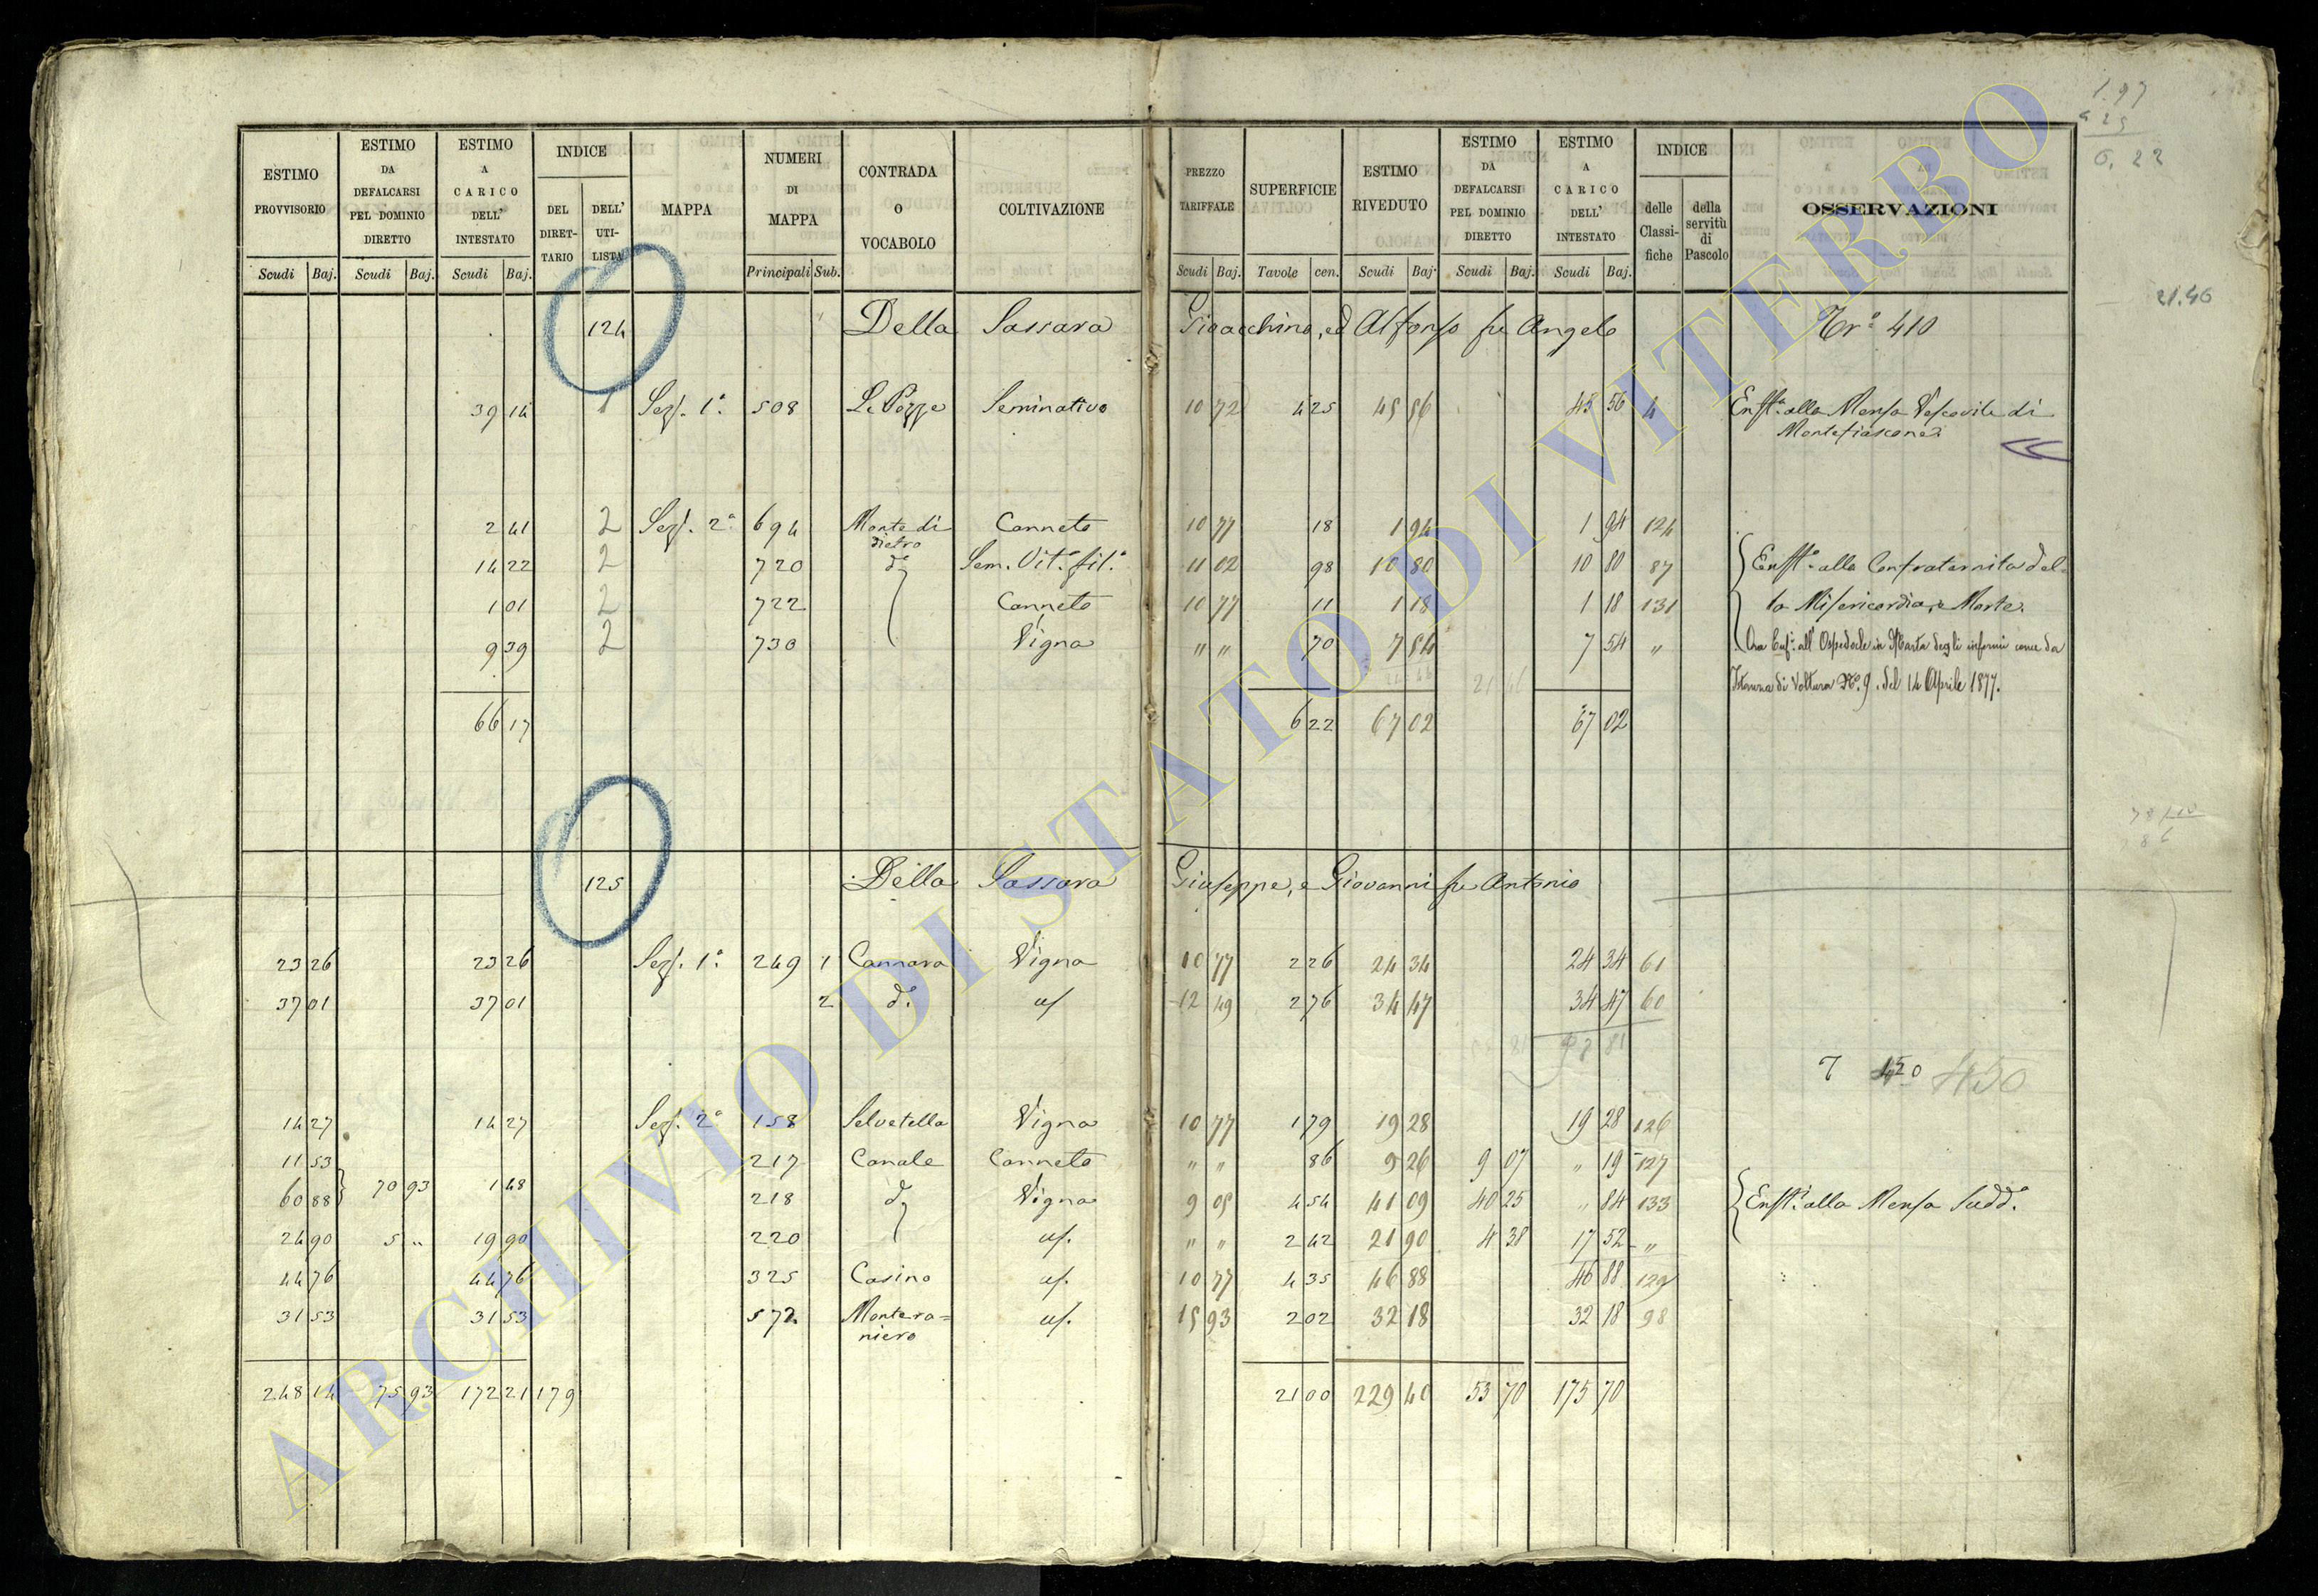 1.97
4 25
6. 22
ESTIMO PROVVISORIO | ESTIMO DA DEFALCARSI PEL DOMINIO DIRETTO | ESTIMO A CARICO DELL' INTESTATO | INDICE DEL DIRET-TARIO | DELL' UTI-LISTA | MAPPA | NUMERI DI MAPPA | CONTRADA O VOCABOLO | COLTIVAZIONE | PREZZO TARIFFALE | SUPERFICIE | ESTIMO RIVEDUTO | ESTIMO DA DEFALCARSI PEL DOMINIO DIRETTO | ESTIMO A CARICO DELL' INTESTATO | INDICE delle Classi-fiche | della servitù di Pascolo | OSSERVAZIONI
Scudi | Baj. | Scudi | Baj. | Scudi | Baj. | Principali | Sub. | Scudi | Baj. | Tavole | cen. | Scudi | Baj. | Scudi | Baj. | Scudi | Baj.
21.46
124 Della Sassara Gioacchino, ed Alfonso fu Angelo Tr.° 410
39 14 1 Sez. 1ª 508 Le Pozze Seminativo 10 72 4 25 45 56 45 56 4 Enft.ª alla Mensa Vescovile di
Montefiascone
2 41 2 Sez. 2ª 694 Monte di dietro Canneto 10 77 18 1 94 1 94 124
14 22 2 720 d.° Sem. Vit.° fil.° 11 02 98 10 80 10 80 87 Enft.ª alla Confraternita del-
1 01 2 722 Canneto 10 77 11 1 18 1 18 131 la Misericordia, e Morte.
9 39 2 730 Vigna " " 70 7 54 7 54 " Ora Enf.ª all' Ospedale in Marta degli infermi come da
21 46 Istanza di Voltura N.° 9. del 14 Aprile 1877.
66 17 6 22 67 02 67 02
125 Della Sassara Giuseppe, e Giovanni fu Antonio
23 26 23 26 Sez. 1ª 249 1 Cannara Vigna 10 77 2 26 24 34 24 34 61
37 01 37 01 2 d.° uf 12 49 2 76 34 47 34 47 60
T 450 450
14 27 14 27 Sez. 2ª 158 Selvetella Vigna 10 77 1 79 19 28 19 28 126
11 53 217 Canale Canneto " " 86 9 26 9 07 " 19 127
70 93 1 48
60 88 218 d.° Vigna 9 05 4 54 41 09 40 25 " 84 133 Enft.ª alla Mensa Sudd.ª
24 90 5 " 19 90 220 uf. " " 2 42 21 90 4 38 17 52 "
44 76 44 76 325 Casino uf. 10 77 4 35 46 88 46 88 129
31 53 31 53 572 Montera=
niero uf. 15 93 2 02 32 18 32 18 98
248 14 75 93 172 21 179 21 00 229 40 53 70 175 70
ARCHIVIO DI STATO DI VITERBO